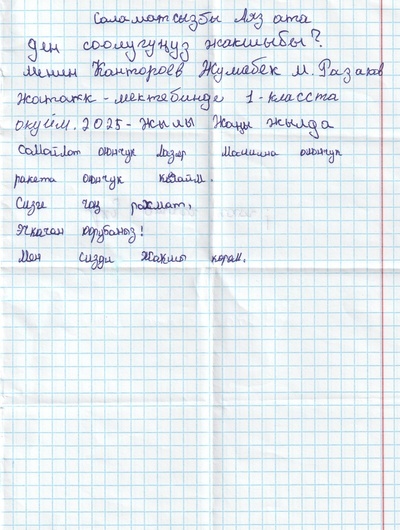 Саламатсызбы Аяз ата
Ден соолугуңуз жакшыбы?
менин Кантороев Жумабек М. Разаков
жатакк - мектебинде 1-класста
окуйм. 2025-жылы Жаңы жылда
самойлот оюнчук лазер Машина оюнчук
ракета оюнчук каалайм.
Сизге чоң рахмат,
Эчкачан корубаңыз!
Мен сизди жакшы көрөм.